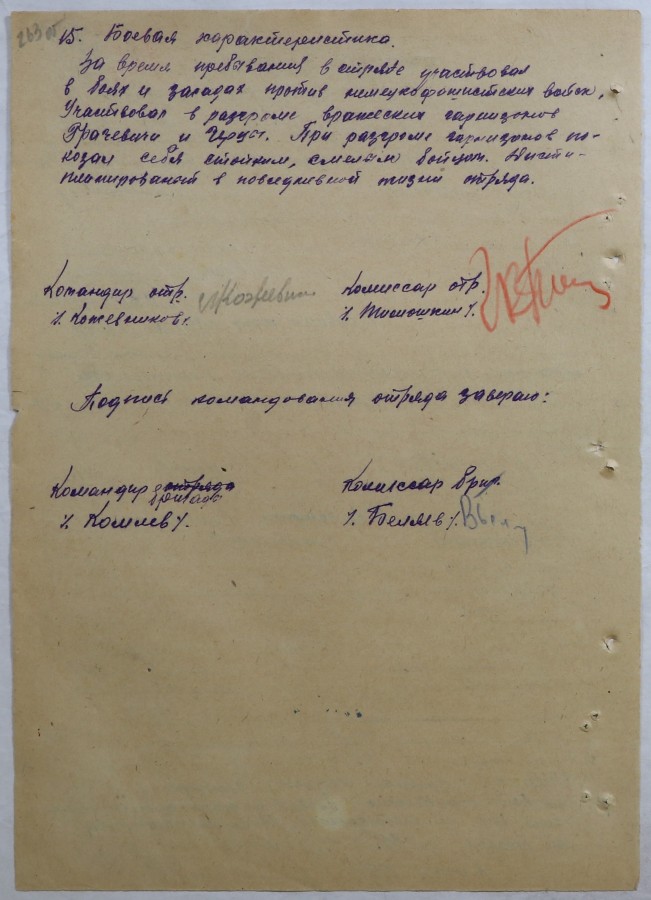 263 об
15. Боевая характеристика.
За время пребывания в отряде участвовал
в боях и засадах против немецкофашистских войск,
Участвовал в разгроме вражеских гарнизонов
Грачевичи и При разгроме гарнизонов по-
казал себя стойким, смелым бойцом. Дисти-
плинирован в повседневной жизни отряда.
Командир отр. Комиссар отр.
/. Кожевников/. /. Тимошкин/.
Подпись командования отряда заверяю:
Командир отряда Комиссар бриг.
бригады
/. Комлев/. /. Беляев/.